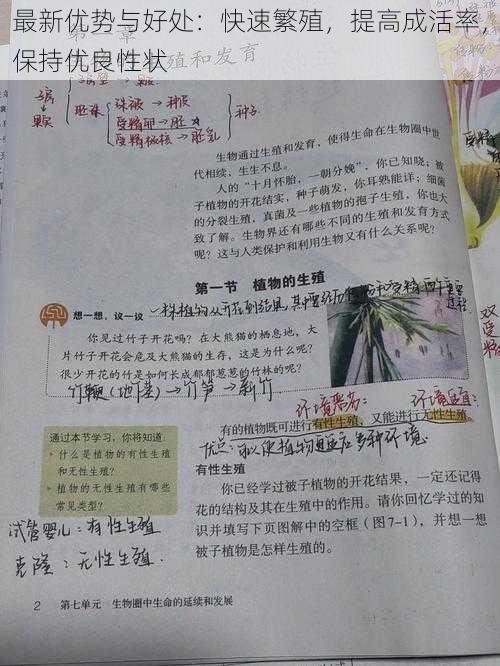 最新优势与好处：快速繁殖，提高成活率，
保持优良性状
殖和发育
子房
果实
胚珠
珠被→种皮
受精卵→胚
受精极核→胚乳
生物通过生殖和发育，使得生命在生物圈中世
代相续、生生不息。
人的“十月怀胎，一朝分娩”，你已知晓；被
子植物的开花结实，种子萌发，你耳熟能详；细菌
的分裂生殖，真菌及一些植物的孢子生殖，你也大
致了解。生物界还有哪些不同的生殖和发育方式
呢？这与人类保护和利用生物又有什么关系呢？
第一节 植物的生殖
想一想，议一议
一株植物从开花到结果，其中要经历传粉和受精两个重要
过程
你见过竹子开花吗？在大熊猫的栖息地，大
片竹子开花会危及大熊猫的生存，这是为什么呢？
很少开花的竹是如何长成郁郁葱葱的竹林的呢？
竹鞭（地下茎）→竹笋→新竹
环境恶劣：
环境适宜：
有的植物既可进行有性生殖，又能进行无性生殖。
优点：可以使植物适应多种环境
通过本节学习，你将知道
什么是植物的有性生殖
和无性生殖？
植物的无性生殖有哪些
常见类型？
有性生殖
你已经学过被子植物的开花结果，一定还记得
花的结构及其在生殖中的作用。请你回忆学过的知
识并填写下页图解中的空框（图7-1），并想一想
被子植物是怎样生殖的。
试管婴儿：有性生殖
克隆：无性生殖.
2 第七单元 生物圈中生命的延续和发展
双
受
精